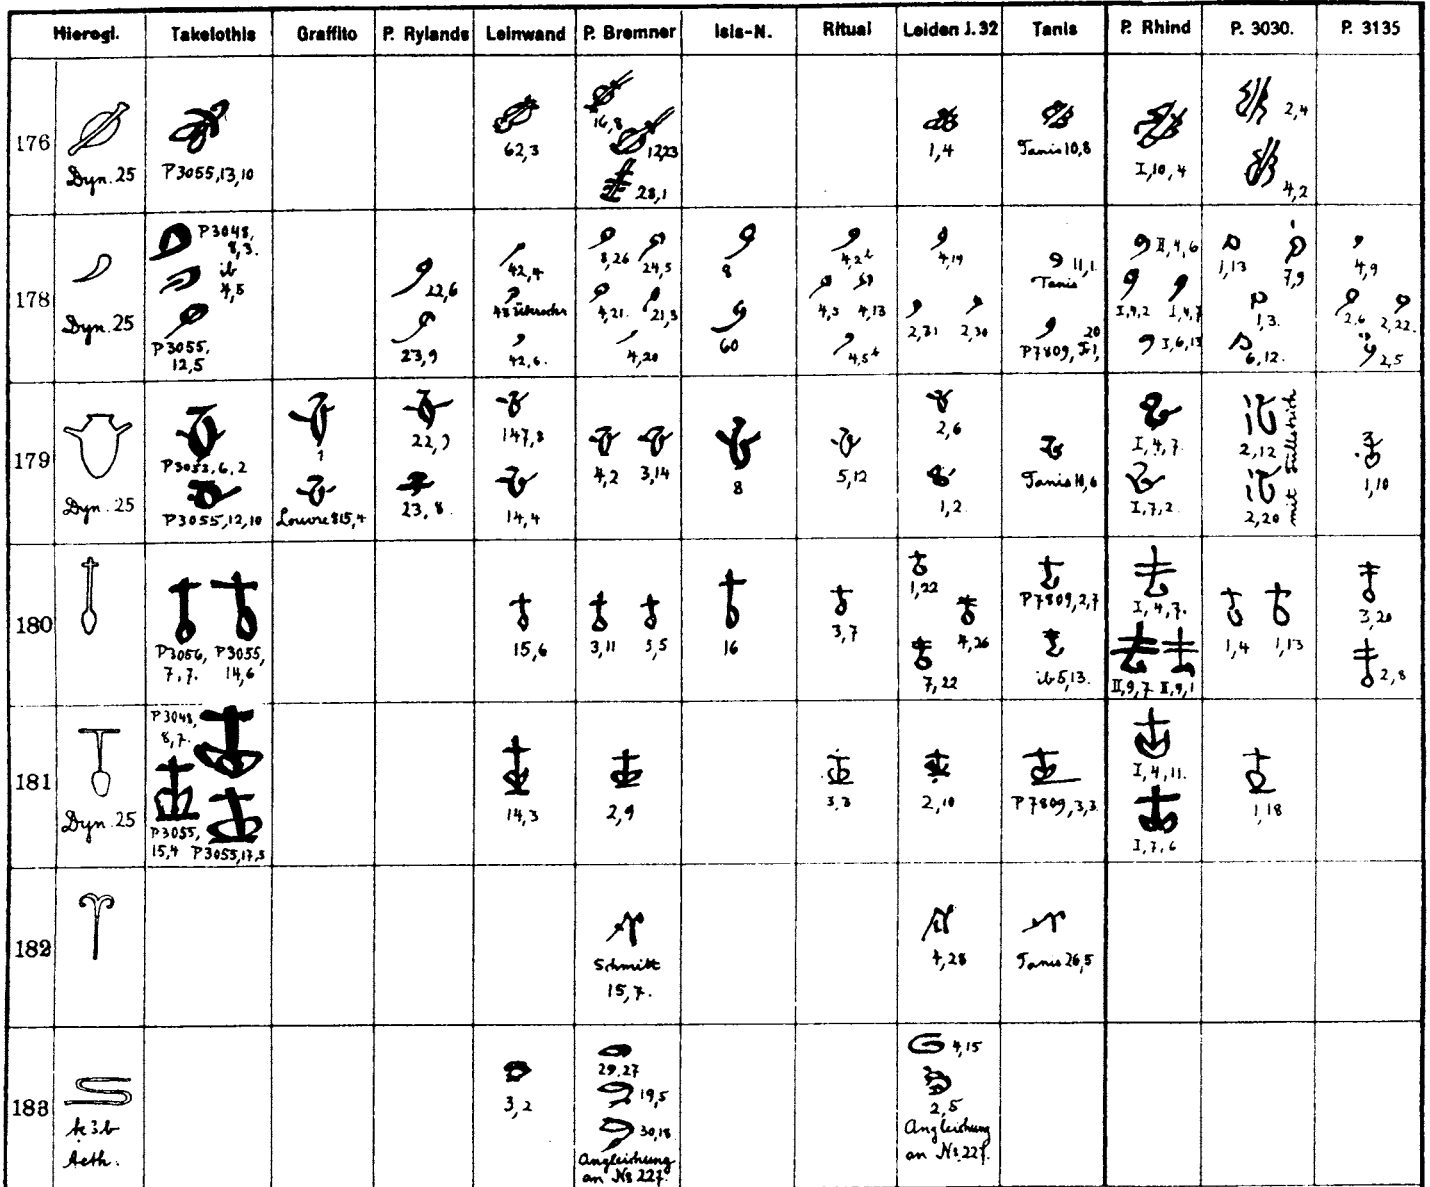 Hierogl. Takelothis Graffito P. Rylands Leinwand P. Bremner Isis-N. Ritual Leiden J.32 Tanis P. Rhind P. 3030. P. 3135
176
Dyn. 25
P3055,13,10
62,3
16,8
12,23
28,1
1,4
Tanis 10,8
I,10,4
2,4
4,2
178
Dyn. 25
P3048,
8,3.
ib
4,5
P3055,
12,5
22,6
23,9
42,4
42,6.
8,26 24,5
4,21. 21,3
4,20
8
60
4,2
4,3 4,13
4,5
4,19
2,31 2,30
11,1.
Tanis
20
P7809, Fr1,
II,4,6
I,9,2 I,4,7
I,6,13
1,13
7,9
1,3.
6,12.
4,9
2,6 2,22.
2,5
179
Dyn. 25
P3053,6,2
P3055,12,10
1
Louvre 815,4
22,9
23,8.
147,8
14,4
4,2 3,14
8
5,12
2,6
1,2.
Tanis 14,6
I,4,7.
I,7,2.
2,12
2,20
mit Füllstrich
1,10
180
P3056,
7,7.
P3055,
14,6
15,6
3,11 5,5
16
3,7
1,22
4,26
7,22
P7809,2,7
ib 5,13.
I,4,7.
II,9,7. II,9,1
1,4 1,13
3,20
2,8
181
Dyn. 25
P3048,
8,7.
P3055,
15,4
P3055,17,5
14,3
2,9
3,3
2,10
P7809,3,3.
I,4,11.
I,7,6
1,18
182
Schmitt
15,7.
4,28
Tanis 26,5
183
Aeth.
3,2
29,27
19,5
30,18
Angleichung
an No 227.
4,15
2,5
Angleichung
an No 227.